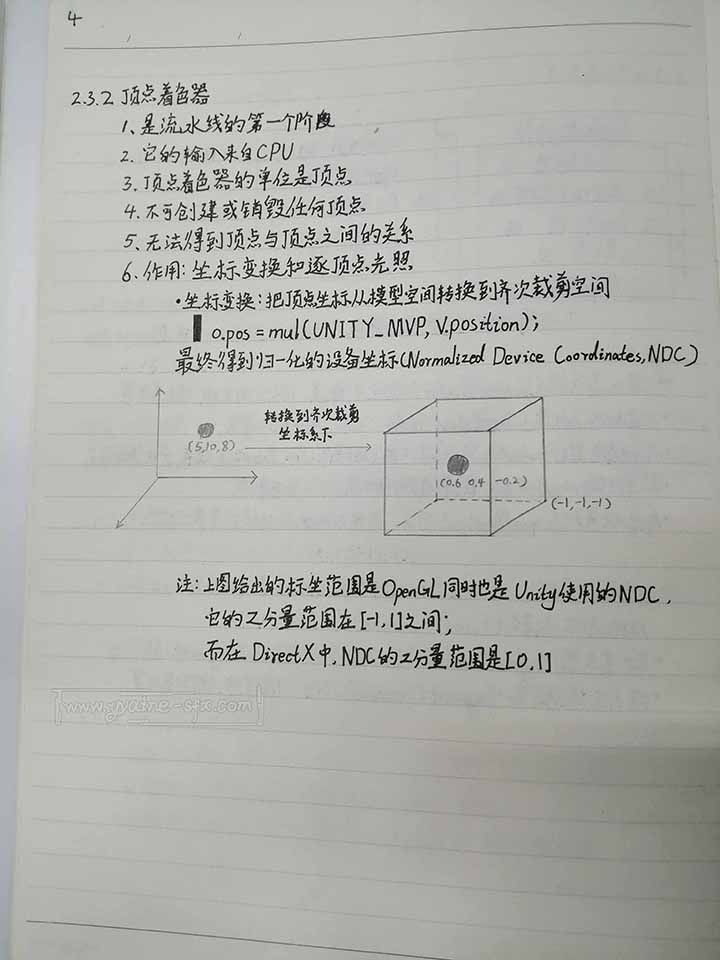 4
2.3.2 顶点着色器
1、是流水线的第一个阶段
2. 它的输入来自CPU
3. 顶点着色器的单位是顶点
4. 不可创建或销毁任何顶点
5、无法得到顶点与顶点之间的关系
6、作用：坐标变换和逐顶点光照
·坐标变换：把顶点坐标从模型空间转换到齐次裁剪空间
o.pos = mul(UNITY_MVP, V.position);
最终得到归一化的设备坐标(Normalized Device Coordinates, NDC)
转换到齐次裁剪
坐标系下
(5,10,8)
(0.6 0.4 -0.2)
(-1,-1,-1)
注：上图给出的标坐范围是OpenGL同时也是Unity使用的NDC,
它的Z分量范围在[-1,1]之间;
而在DirectX中,NDC的Z分量范围是[0,1]
www.yaine-sfx.com